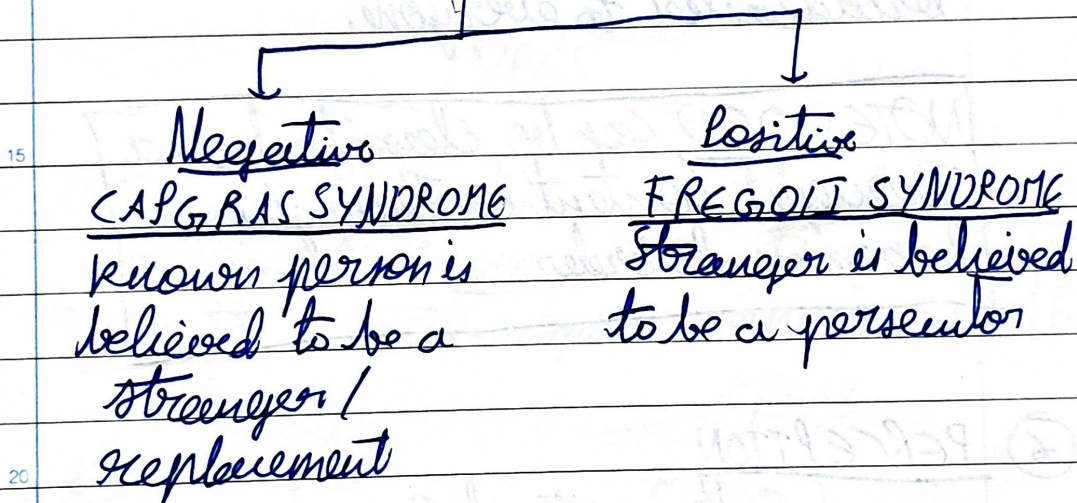 Negative
CAPGRAS SYNDROME
known person is
believed to be a
stranger /
replacement
Positive
FREGOLI SYNDROME
Stranger is believed
to be a persecutor
15
20